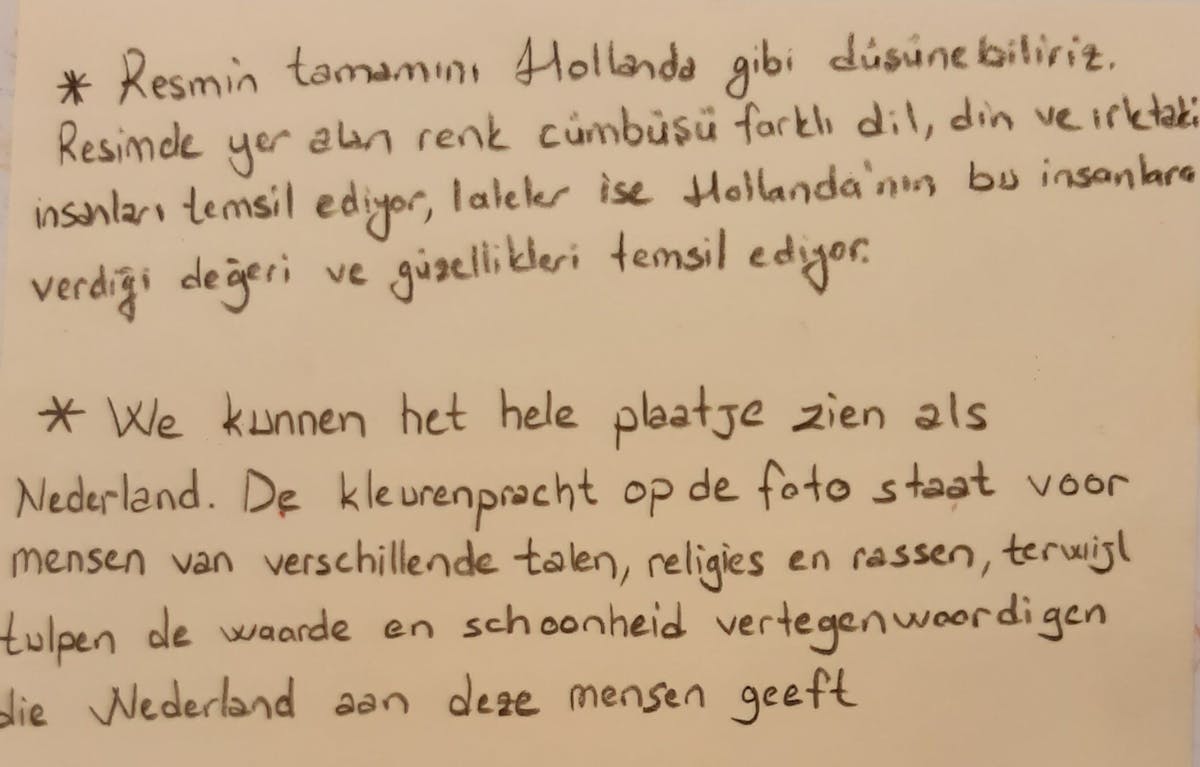 * Resmin tamamını Hollanda gibi düşünebiliriz.
Resimde yer alan renk cümbüşü farklı dil, din ve ırktaki
insanları temsil ediyor, laleler ise Hollanda'nın bu insanlara
verdiği değeri ve güzellikleri temsil ediyor.
* We kunnen het hele plaatje zien als
Nederland. De kleurenpracht op de foto staat voor
mensen van verschillende talen, religies en rassen, terwijl
tulpen de waarde en schoonheid vertegenwoordigen
die Nederland aan deze mensen geeft